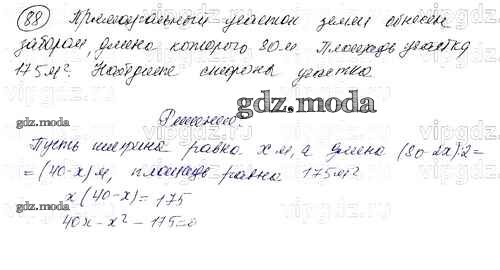 88 Прямоугольный участок земли обнесен
забором, длина которого 80 м. Площадь участка
175 м². Найдите стороны участка
gdz.moda
Решение.
Пусть ширина равна x м, а длина (80-2x):2=
=(40-x) м, площадь равна 175 м²
x(40-x)=175
40x-x²-175=0
gdz.moda
gdz.moda